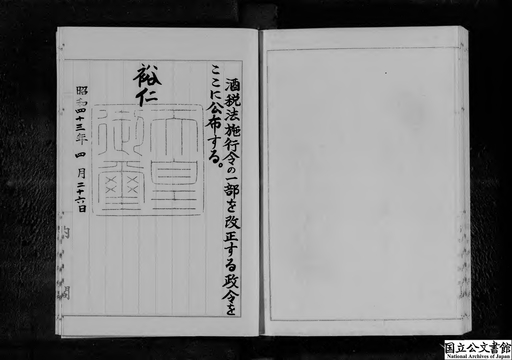 酒税法施行令の一部を改正する政令を
ここに公布する。
裕仁
天皇
御璽
昭和四十三年四月二十六日
内閣
国立公文書館
National Archives of Japan